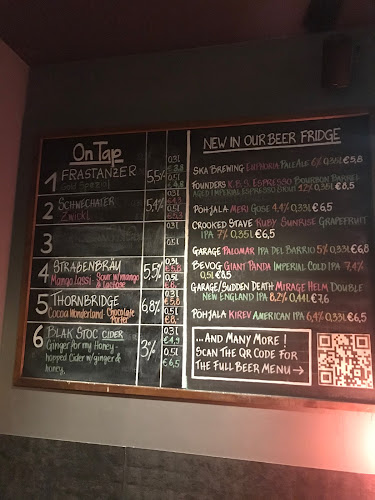 On Tap
1 FRASTANZER 5,5% 0,3l
Gold Spezial 0,5l
2 SCHWECHATER 5,4% 0,3l
Zwickl 0,5l
3 0,3l
0,5l
4 STRABENBRÄU 5,5% 0,3l
Mango Lassi - Sour w/ mango 0,5l
& lactose
5 THORNBRIDGE 6,8% 0,3l
Cocoa Wonderland - Chocolate 0,5l
Porter
6 BLAK STOC CIDER 3% 0,3l
Ginger for my Honey - € 4,9
hopped Cider w/ginger & 0,5l
honey, € 6,5
NEW IN OUR BEER FRIDGE
SKA BREWING EUPHORIA PALE ALE 6% 0,33l €5,8
FOUNDERS K.B.S. ESPRESSO BOURBON BARREL
AGED IMPERIAL ESPRESSO STOUT 12% 0,35l €8,5
PÕHJALA MERI GOSE 4,4% 0,33l €6,5
CROOKED STAVE RUBY SUNRISE GRAPEFRUIT
IPA 7% 0,35l €6,5
GARAGE PALOMAR IPA DEL BARRIO 5% 0,33l €6,8
BEVOG GIANT PANDA IMPERIAL COLD IPA 7,4%
0,5l €8,5
GARAGE/SUDDEN DEATH MIRAGE HELM DOUBLE
NEW ENGLAND IPA 8,2% 0,44l €7,6
PÕHJALA KIREV AMERICAN IPA 6,4% 0,33l €6,5
...AND MANY MORE!
SCAN THE QR CODE FOR
THE FULL BEER MENU →